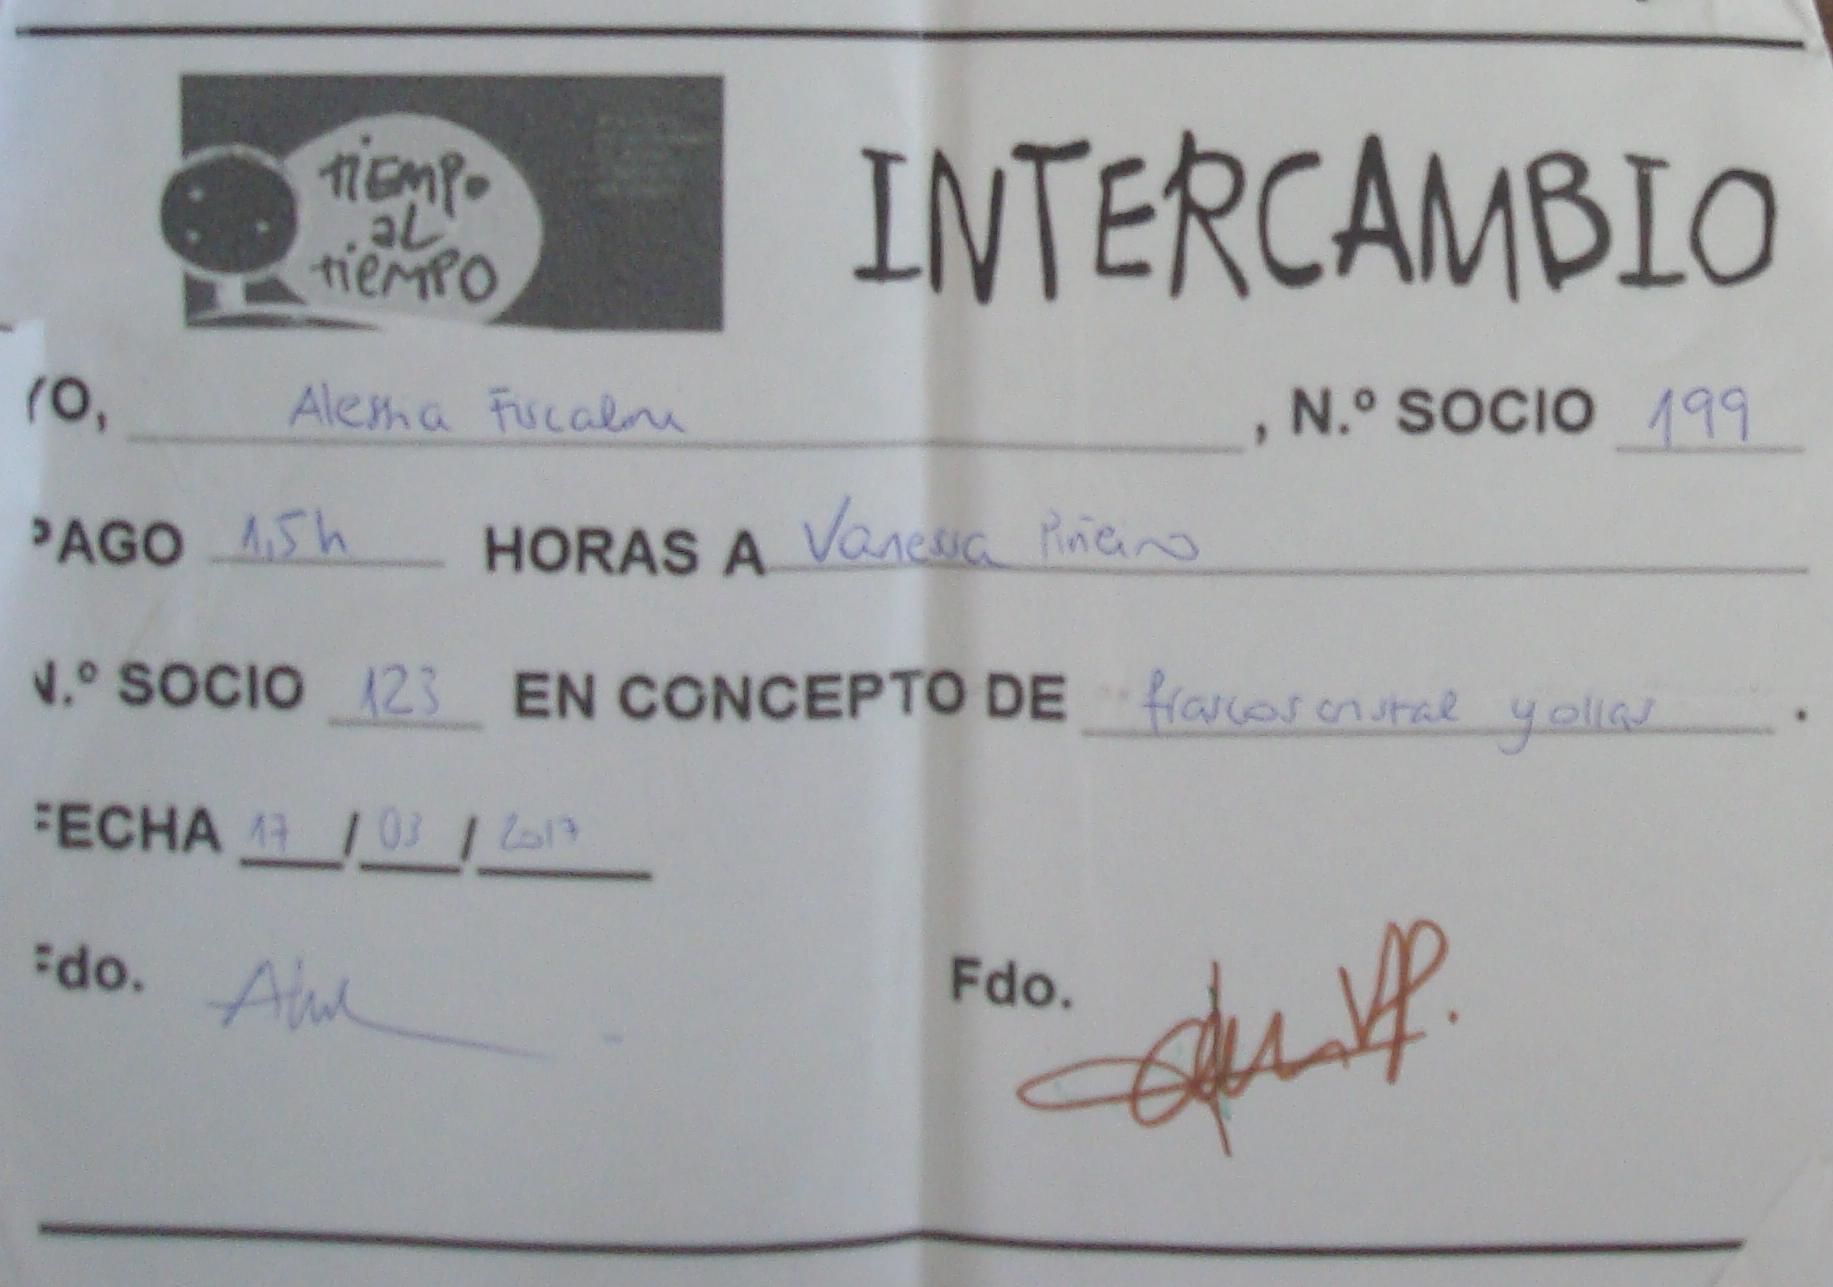 TiEMPO
AL
TiEMPO
INTERCAMBIO
YO, Alessia , N.º SOCIO 199
PAGO 1,5h HORAS A Vanessa Piñeiro
N.º SOCIO 123 EN CONCEPTO DE frascos cristal y ollas .
FECHA 17 / 03 / 2017
Fdo. Fdo.